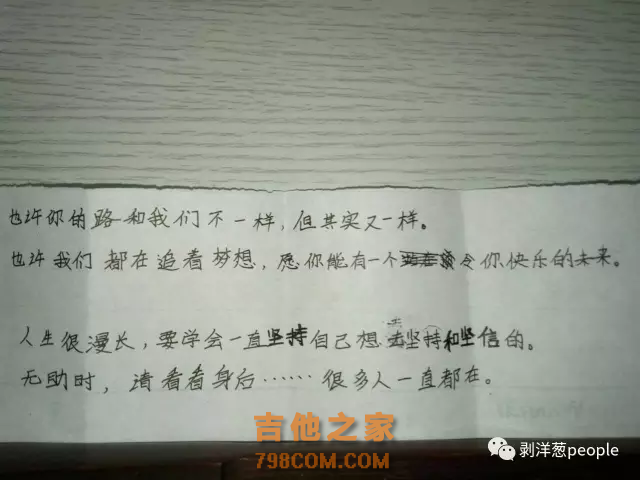 也许你的路和我们不一样，但其实又一样。
也许我们都在追着梦想，愿你能有一个令你快乐的未来。
人生很漫长，要学会一直坚持自己想去坚持和坚信的。
无助时，请看看身后……很多人一直都在。
吉他之家
798COM.COM
剥洋葱people